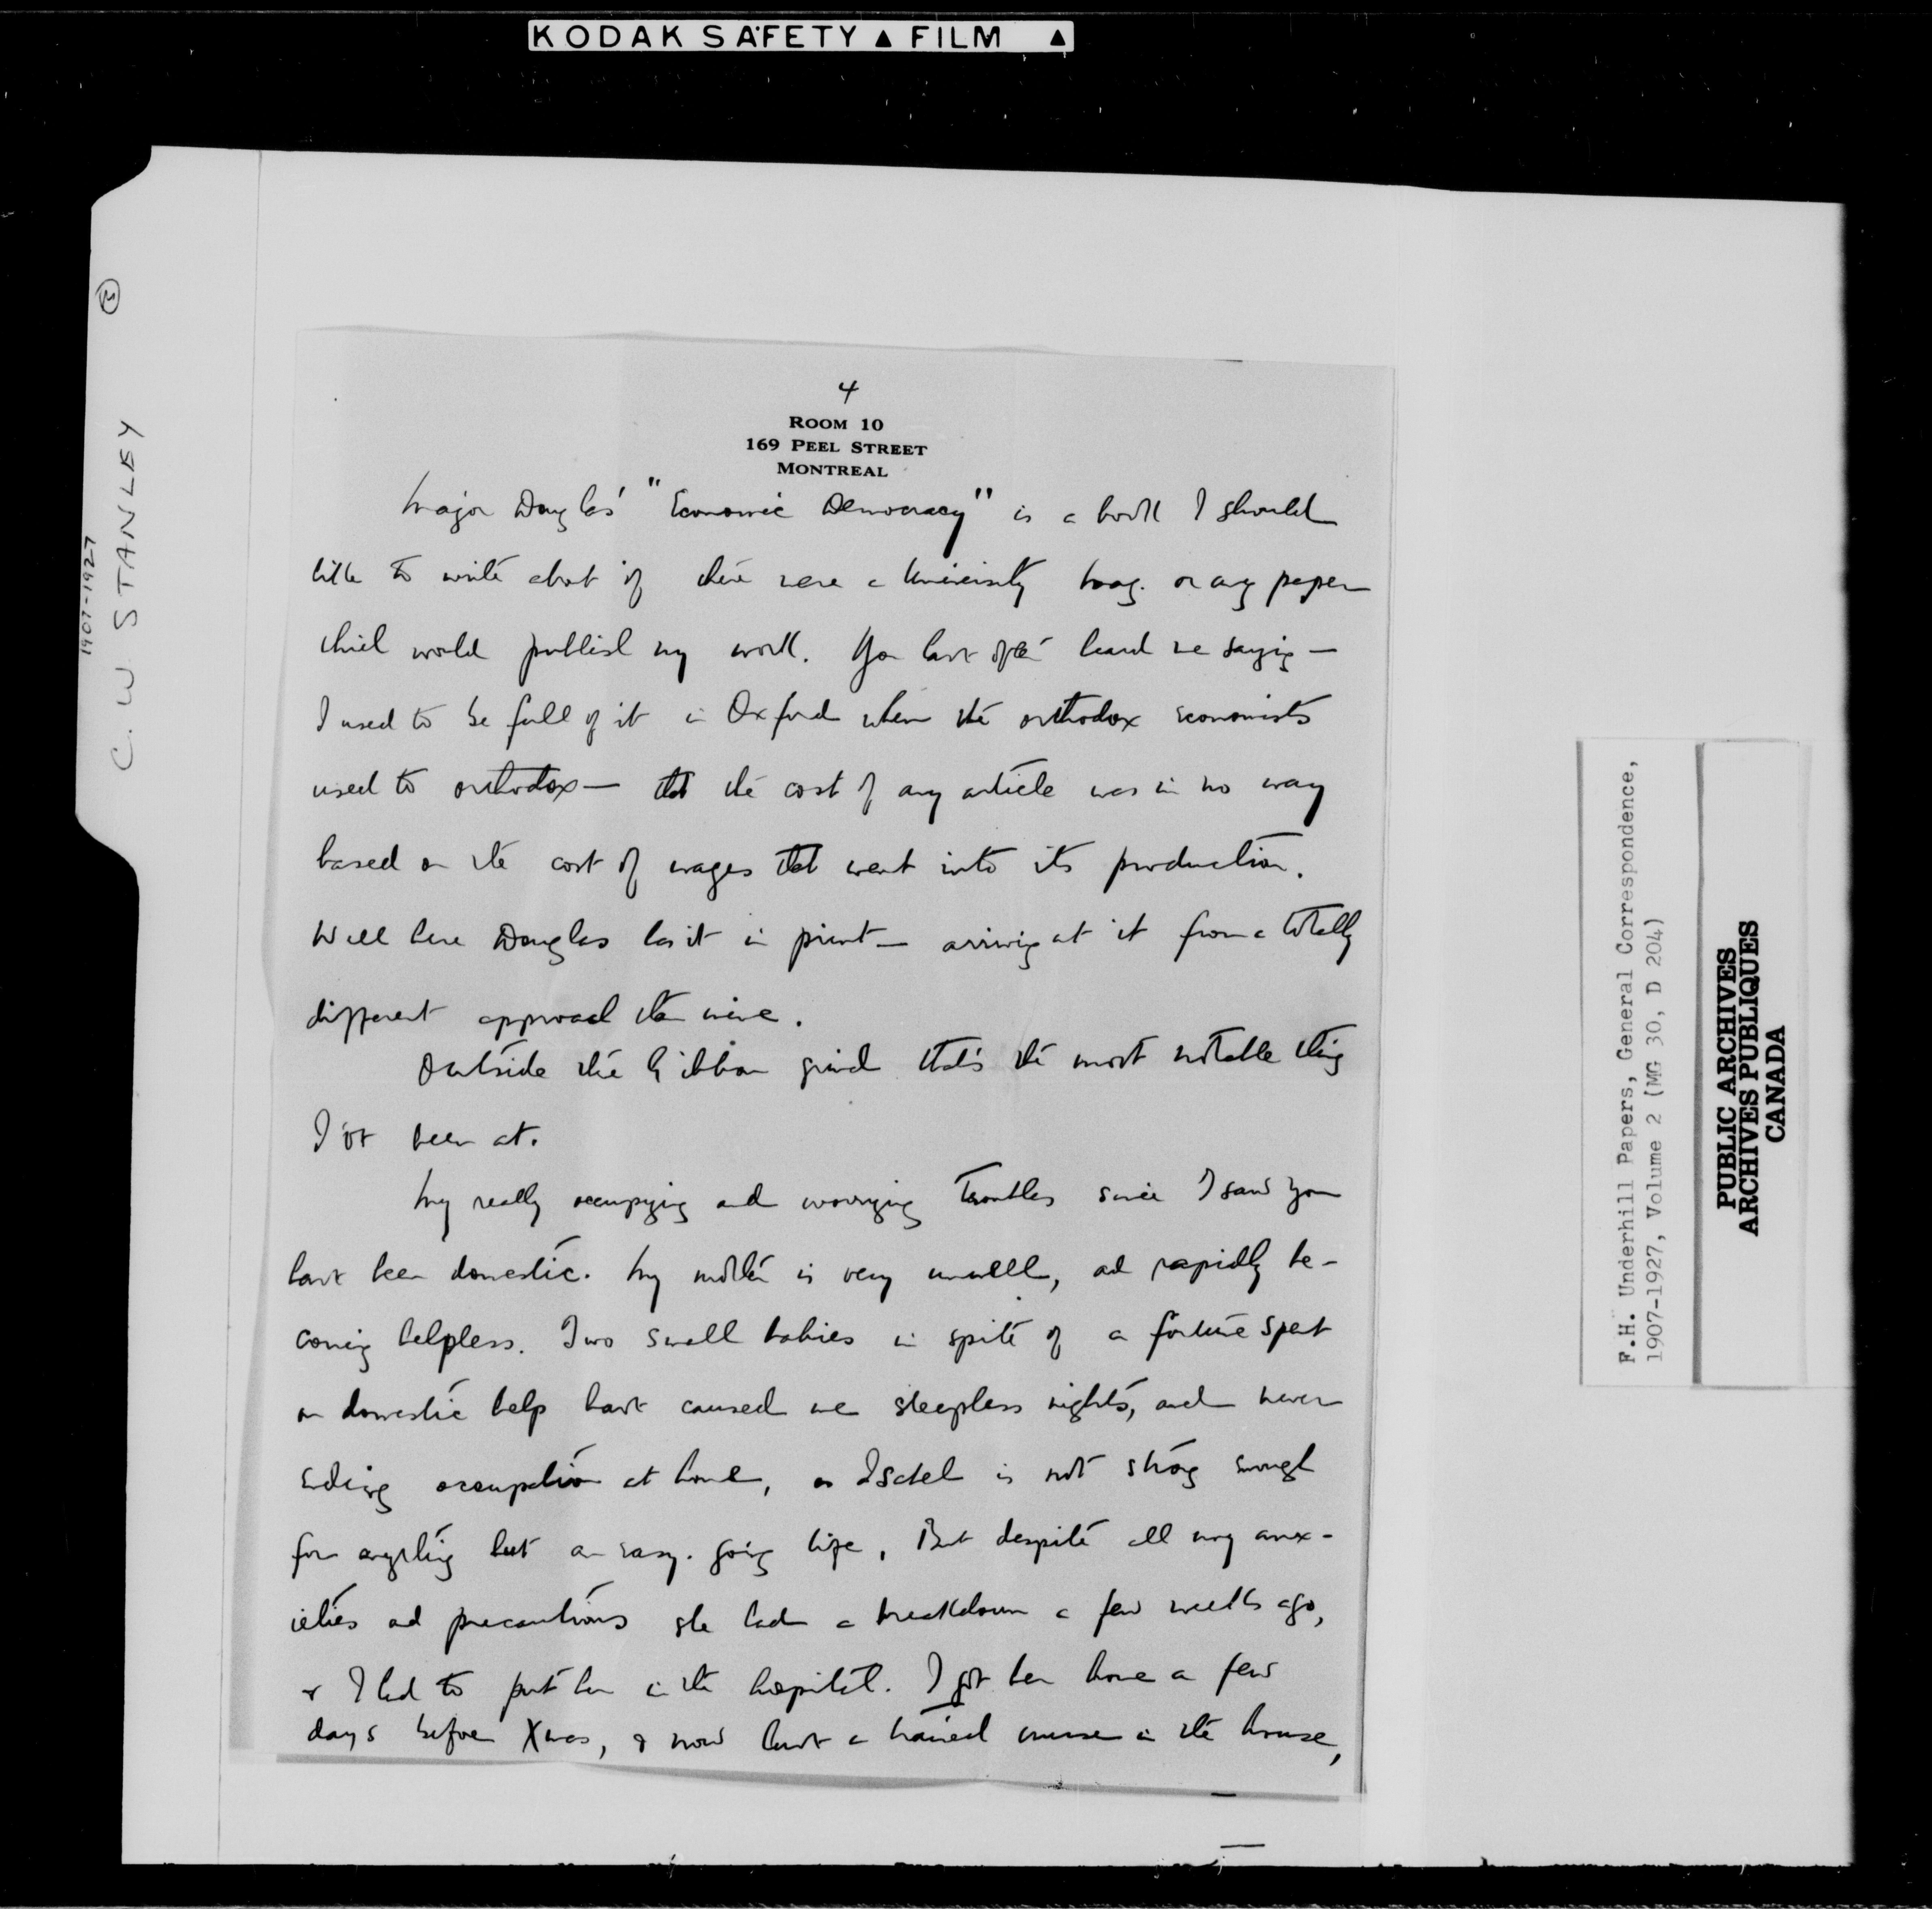 KODAK SAFETY ▲ FILM ▲
C. W. STANLEY
1907-1927
4
ROOM 10
169 PEEL STREET
MONTREAL
Major Douglas' "Economic Democracy" is a book I should
like to write about if there were a University Mag. or any paper
which would publish my work. You have often heard me saying —
I used to be full of it in Oxford when the orthodox economists
used to orthodox — that the cost of any article was in no way
based on the cost of wages that went into its production.
Well here Douglas has it in print — arriving at it from a totally
different approach than mine.
Outside the Gibbon grind that's the most notable thing
I've been at.
My really occupying and worrying troubles since I saw you
have been domestic. My mother is very unwell, and rapidly be-
coming helpless. Two small babies in spite of a fortune spent
on domestic help have caused me sleepless nights, and never
ending occupation at home, as is not strong enough
for anything but an easy-going life. But despite all my anx-
ieties and precautions she had a breakdown a few weeks ago,
& I had to put her in the hospital. I got her home a few
days before Xmas, & now have a trained nurse in the house,
F.H. Underhill Papers, General Correspondence,
1907-1927, Volume 2 (MG 30, D 204)
PUBLIC ARCHIVES
ARCHIVES PUBLIQUES
CANADA